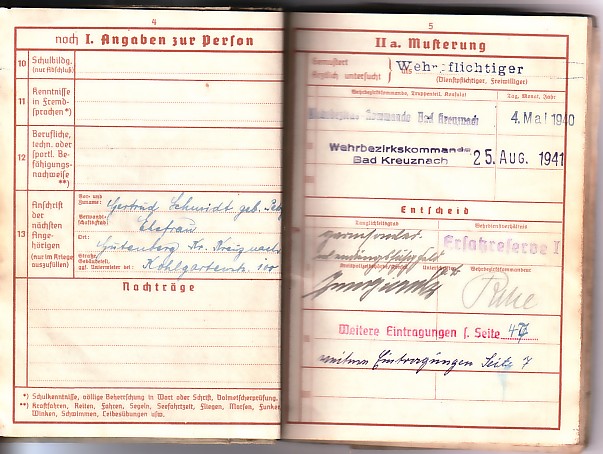 4
noch I. Angaben zur Person
10 Schulbildg.
(nur Abschluß)
11 Kenntnisse
in Fremd-
sprachen *)
12 Berufliche,
techn. oder
sportl. Be-
fähigungs-
nachweise
**)
13 Anschrift
der
nächsten
Ange-
hörigen
(nur im Kriege
auszufüllen)
Vor- und
Zuname:
Gertrud Schmidt geb.
Verwandt-
schaftsgrad:
Ehefrau
Ort:
Gutenberg Kr. Kreuznach
Straße,
Gebäudeteil,
ggf. Untermieter bei:
Nachträge
*) Schulkenntnisse, völlige Beherrschung in Wort oder Schrift, Dolmetscherprüfung.
**) Kraftfahren, Reiten, Fahren, Segeln, Seefahrtzeit, Fliegen, Morsen, Funken
Winken, Schwimmen, Leibesübungen usw.
5
II a. Musterung
Gemustert
Ärztlich untersucht
als
Wehrpflichtiger
(Dienstpflichtiger, Freiwilliger)
Wehrbezirkskommando, Truppenteil, Konsulat
Tag, Monat, Jahr
Wehrbezirks Kommando Bad Kreuznach
4. Mai 1940
Wehrbezirkskommando
Bad Kreuznach
25. AUG. 1941
Entscheid
Tauglichkeitsgrad
Wehrdienstverhältnis
Ersatzreserve I
Wehrbezirkskommandeur
Weitere Eintragungen s. Seite 47
weitere Eintragungen Seite 7